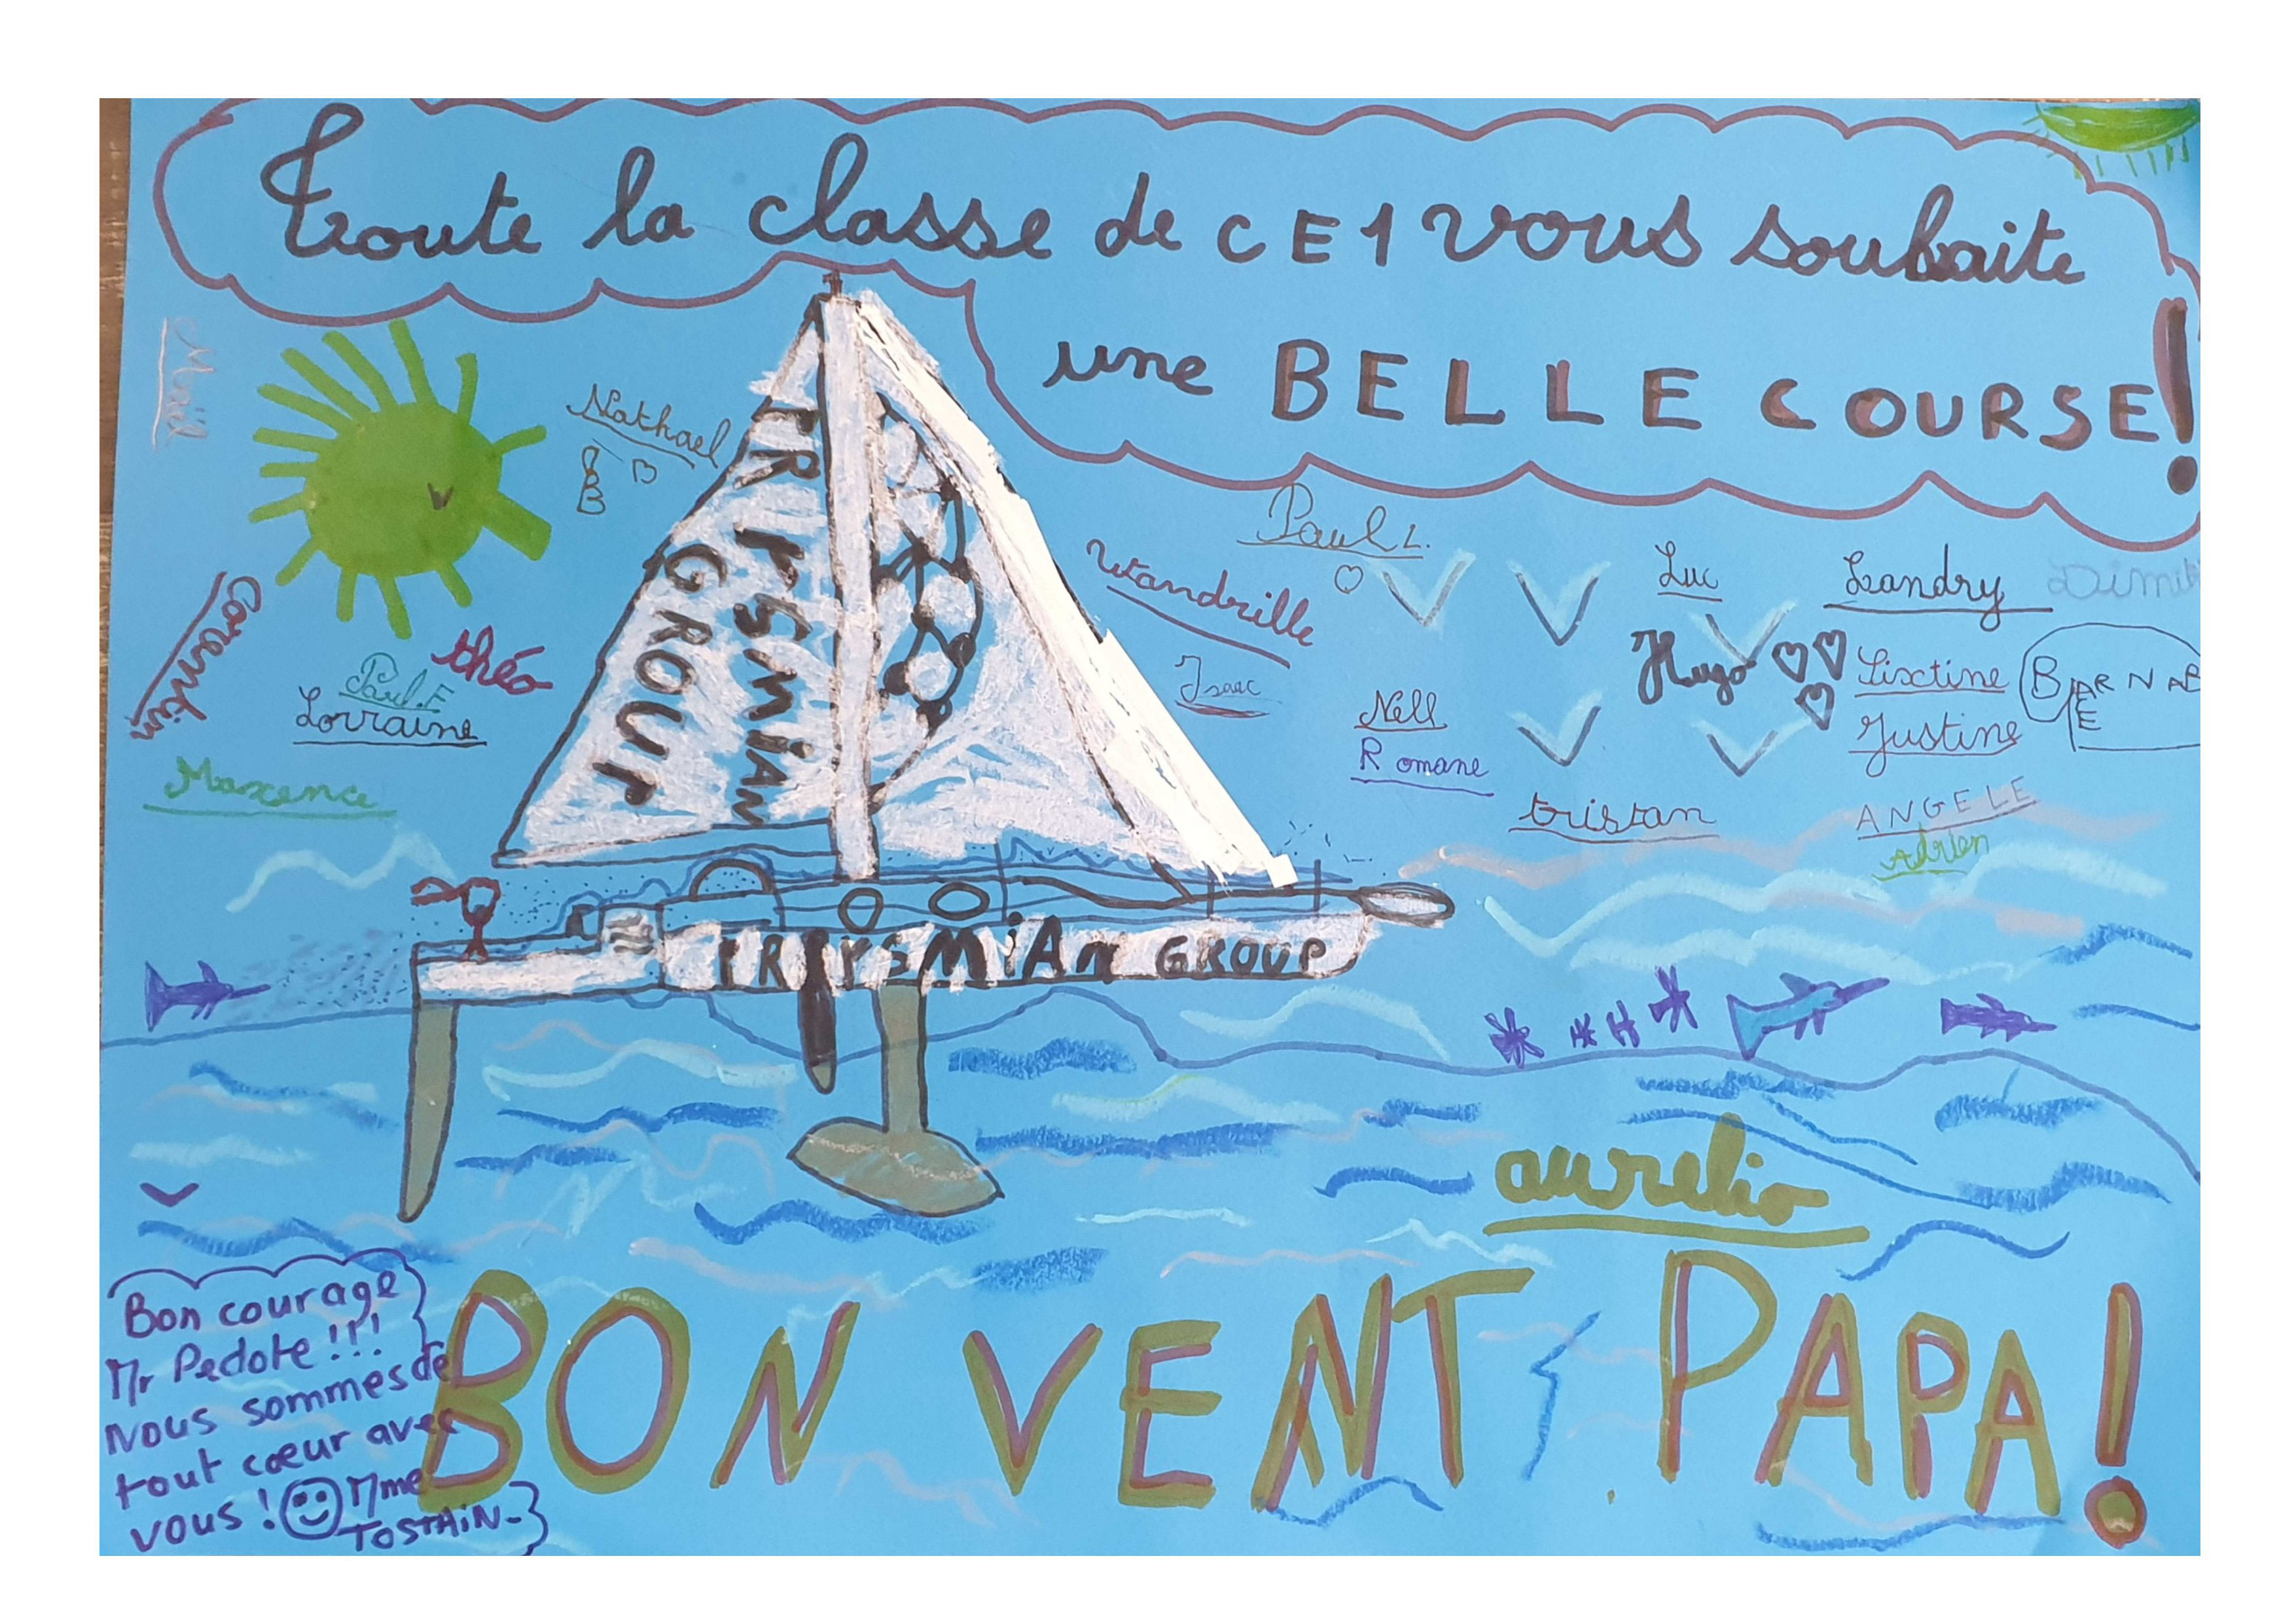 Toute la classe de CE1 vous souhaite
une BELLE COURSE!
Maël
Nathael
Paul L.
Wandrille
Luc
Landry
Corantin
théo
Paul.F
Lorraine
Isaac
Hugo
Sixtine
BARNABE
Nell
Justine
Romane
Maxence
tristan
ANGELE
Adrien
PRYSMiAN
GROUP
PRYSMiAn GROUP
aurelio
BON VENT PAPA!
Bon courage
Mr Pedote!!!
Nous sommes de
tout cœur avec
vous! Mme
TOSTAiN-